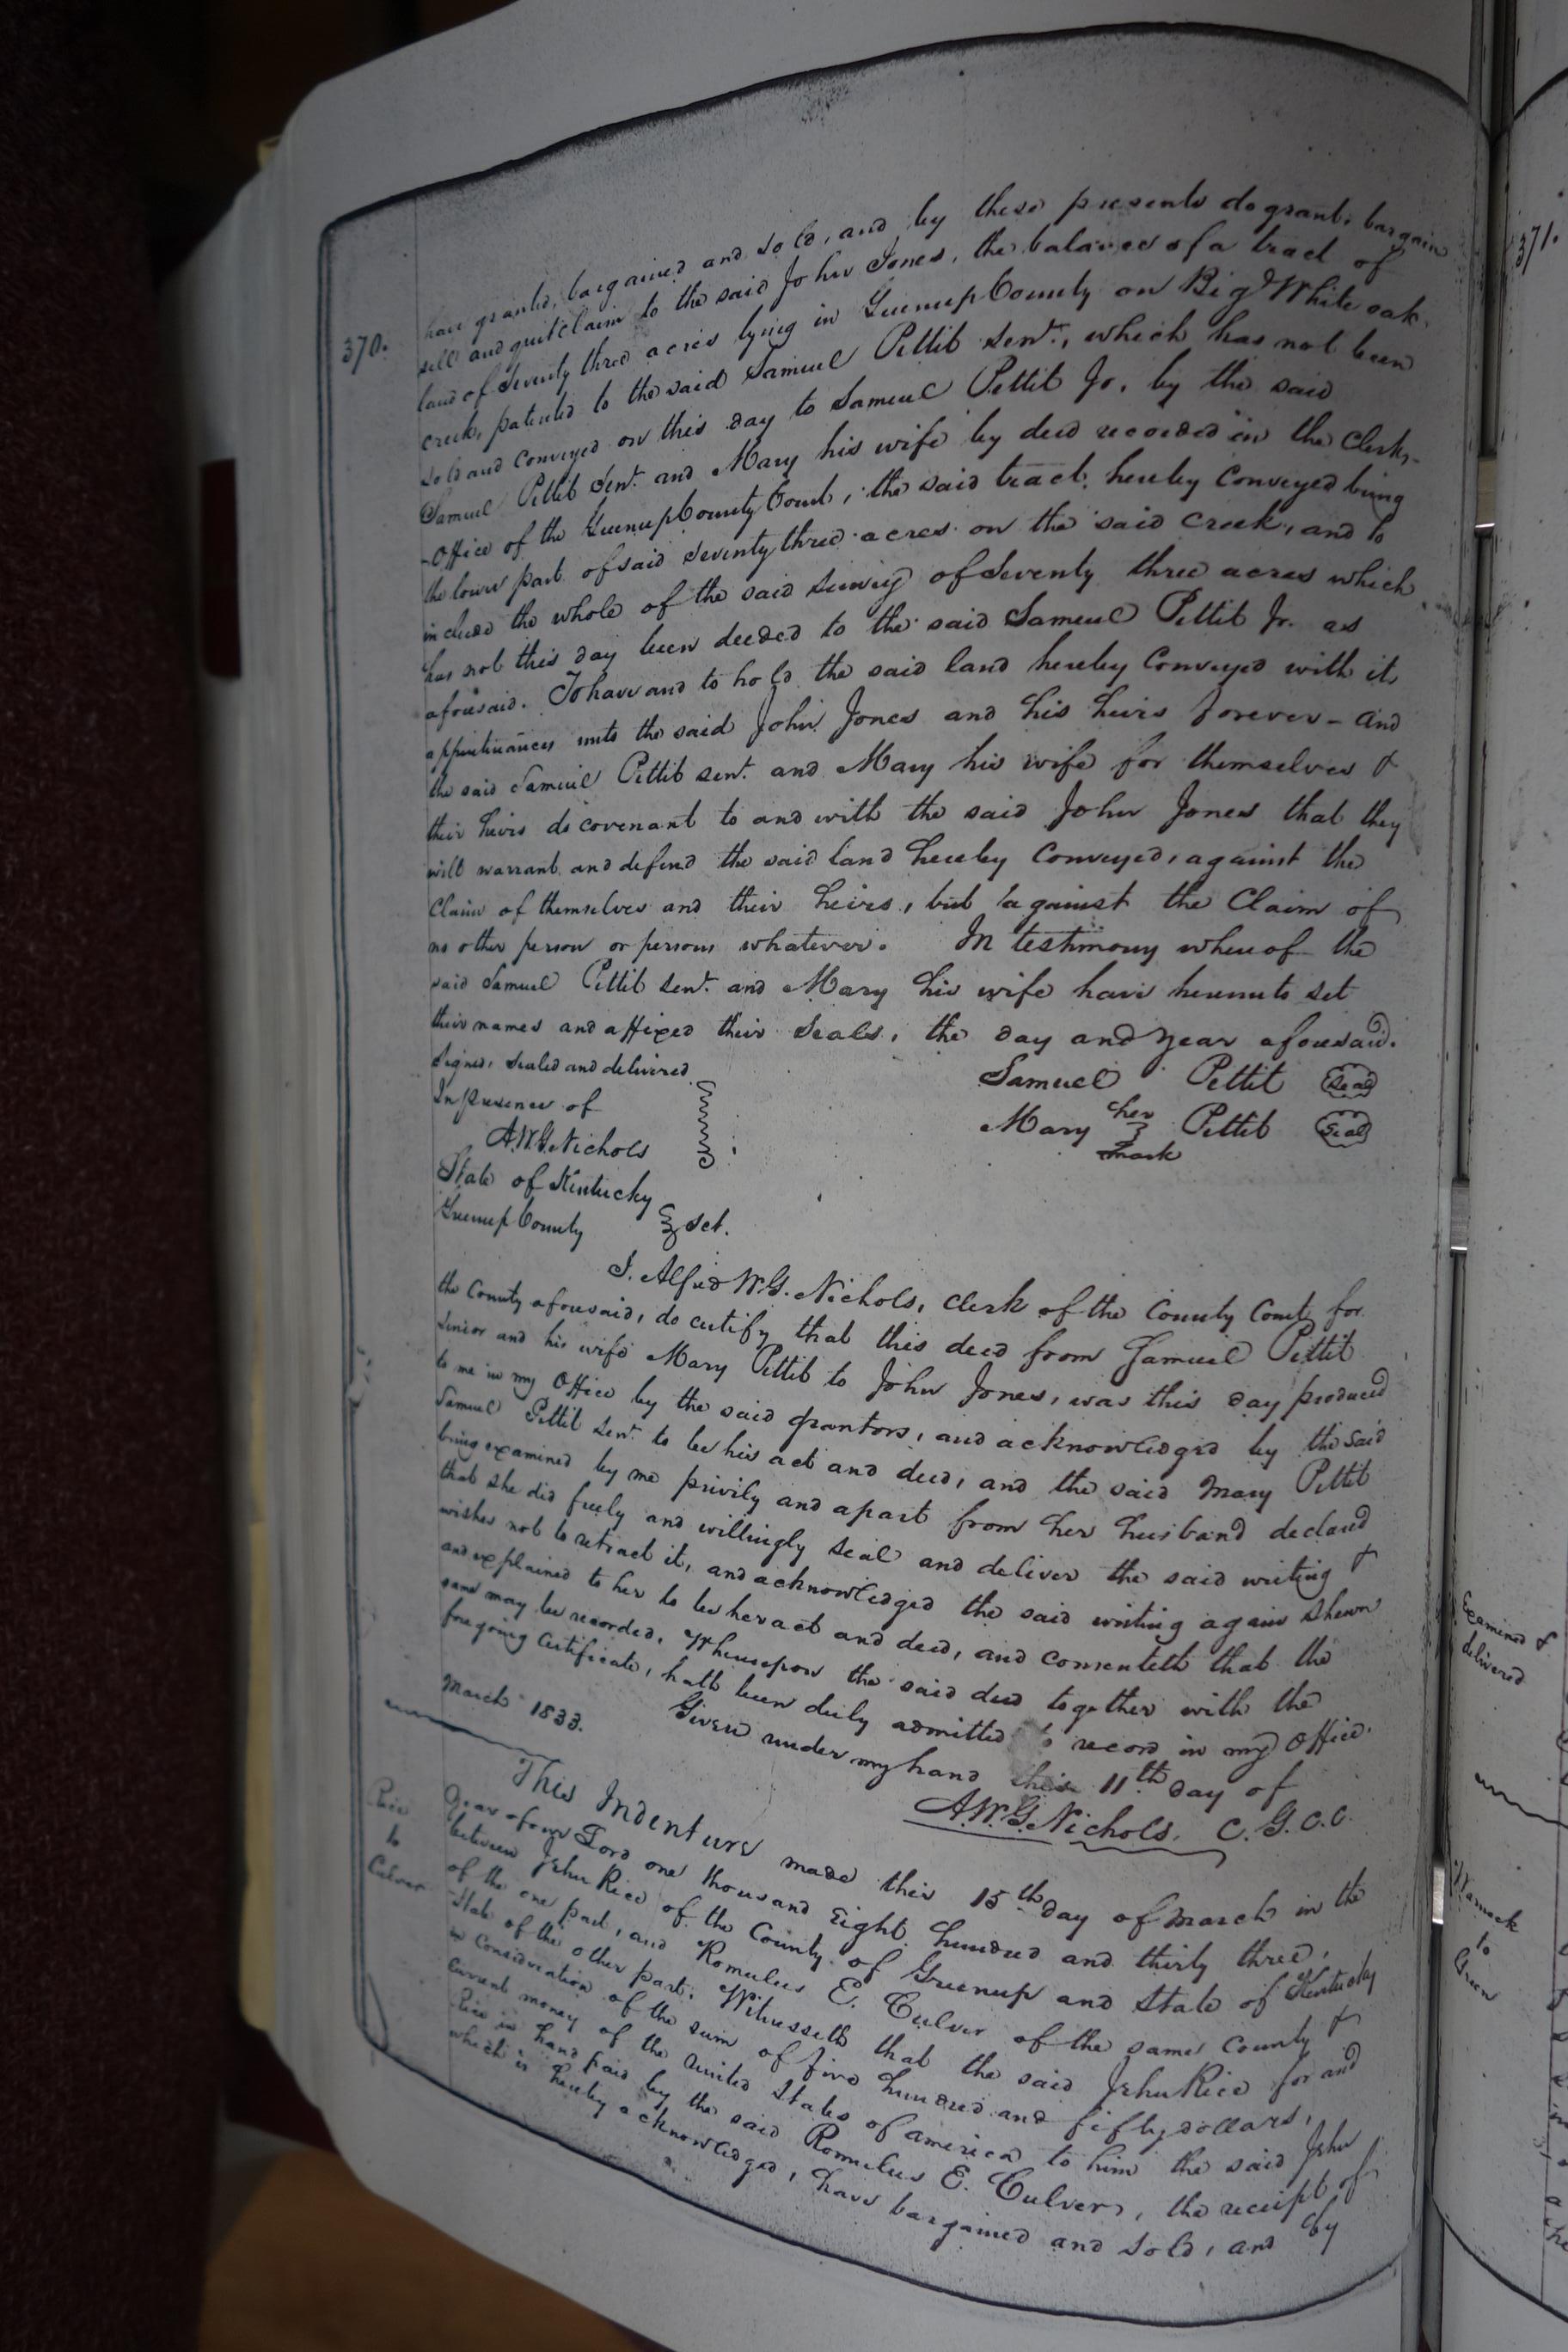 370.
have granted, bargained and sold, and by these presents do grant, bargain
sell and quitclaim to the said John Jones, the balance of a tract of
land of Seventy three acres lying in Greenup County on Big White oak
creek, patented to the said Samuel Pettit Senr., which has not been
sold and conveyed on this day to Samuel Pettit Jr. by the said
Samuel Pettit Senr. and Mary his wife by deed recorded in the Clerks
Office of the Greenup County Court, the said tract hereby conveyed being
the lower part of said Seventy three acres on the said creek, and to
include the whole of the said survey of Seventy three acres which
has not this day been deeded to the said Samuel Pettit Jr. as
aforesaid. To have and to hold the said land hereby conveyed with it
appurtenances unto the said John Jones and his heirs forever - and
the said Samuel Pettit senr. and Mary his wife for themselves &
their heirs do covenant to and with the said John Jones that they
will warrant and defend the said land hereby conveyed, against the
Claim of themselves and their heirs, but against the Claim of
no other person or persons whatever. In testimony whereof the
said Samuel Pettit Senr. and Mary his wife have hereunto set
their names and affixed their Seals, the day and year aforesaid.
Signed, Sealed and delivered
In presence of
A.W.G. Nichols
Samuel Pettit Seal
Mary her mark Pettit Seal
State of Kentucky
Greenup County Sct.
I. Alfred W.G. Nichols, Clerk of the County Court for
the County aforesaid, do certify that this deed from Samuel Pettit
Senior and his wife Mary Pettit to John Jones, was this day produced
to me in my Office by the said grantors, and acknowledged by the said
Samuel Pettit Senr. to be his act and deed, and the said Mary Pettit
being examined by me privily and apart from her husband declared
that she did freely and willingly seal and deliver the said writing &
wishes not to retract it, and acknowledged the said writing again shewn
and explained to her to be her act and deed, and consenteth that the
same may be recorded. Whereupon the said deed together with the
foregoing Certificate, hath been duly admitted to record in my Office.
Given under my hand this 11th day of
March 1833.
A.W.G. Nichols. C.G.C.C.
Rice
to
Culver
This Indenture made this 15th day of March in the
Year of our Lord one thousand Eight hundred and thirty three,
between John Rice of the County of Greenup and State of Kentucky
of the one part, and Romulus E. Culver of the same County &
State of the other part; Witnesseth that the said John Rice for and
in Consideration of the sum of five hundred and fifty dollars,
Current money of the United States of America to him the said John
Rice in hand paid by the said Romulus E. Culver, the receipt of
which is hereby acknowledged, have bargained and sold, and by
371.
Examined &
delivered
Warnock
to
Green